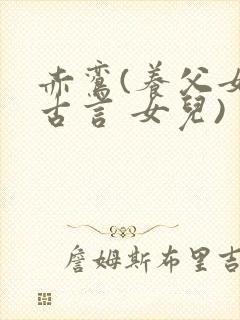 赤鸞(養父女
古言 女兒)
詹姆斯布里吉